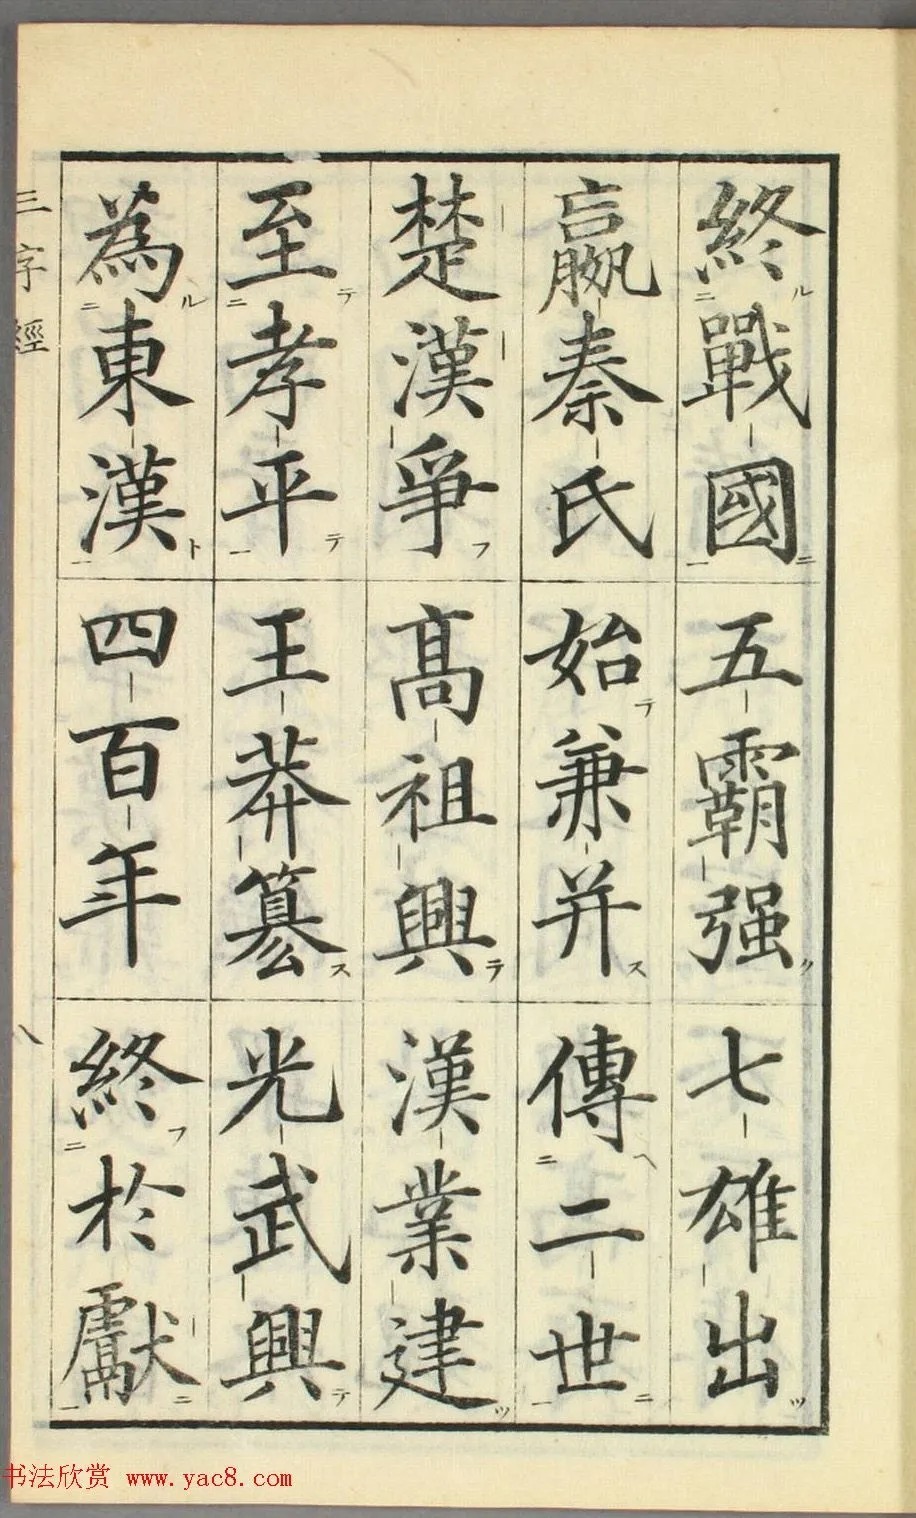 終戰國 五霸强 七雄出
嬴秦氏 始兼并 傳二世
楚漢爭 高祖興 漢業建
至孝平 王莽篡 光武興
為東漢 四百年 終於獻
三字經
八
书法欣赏 www.yac8.com